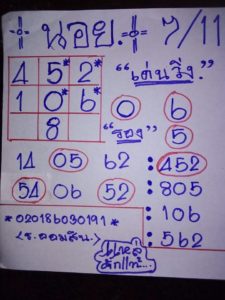 นอย. 7/11
4 5* 2* "เด่นวิ่ง."
1 0* 6* 0 6
8 "รอง" 5
14 05 62 : 452
54 06 52 : 805
*020186030191* : 106
(ธ.ออมสิน.) : 562